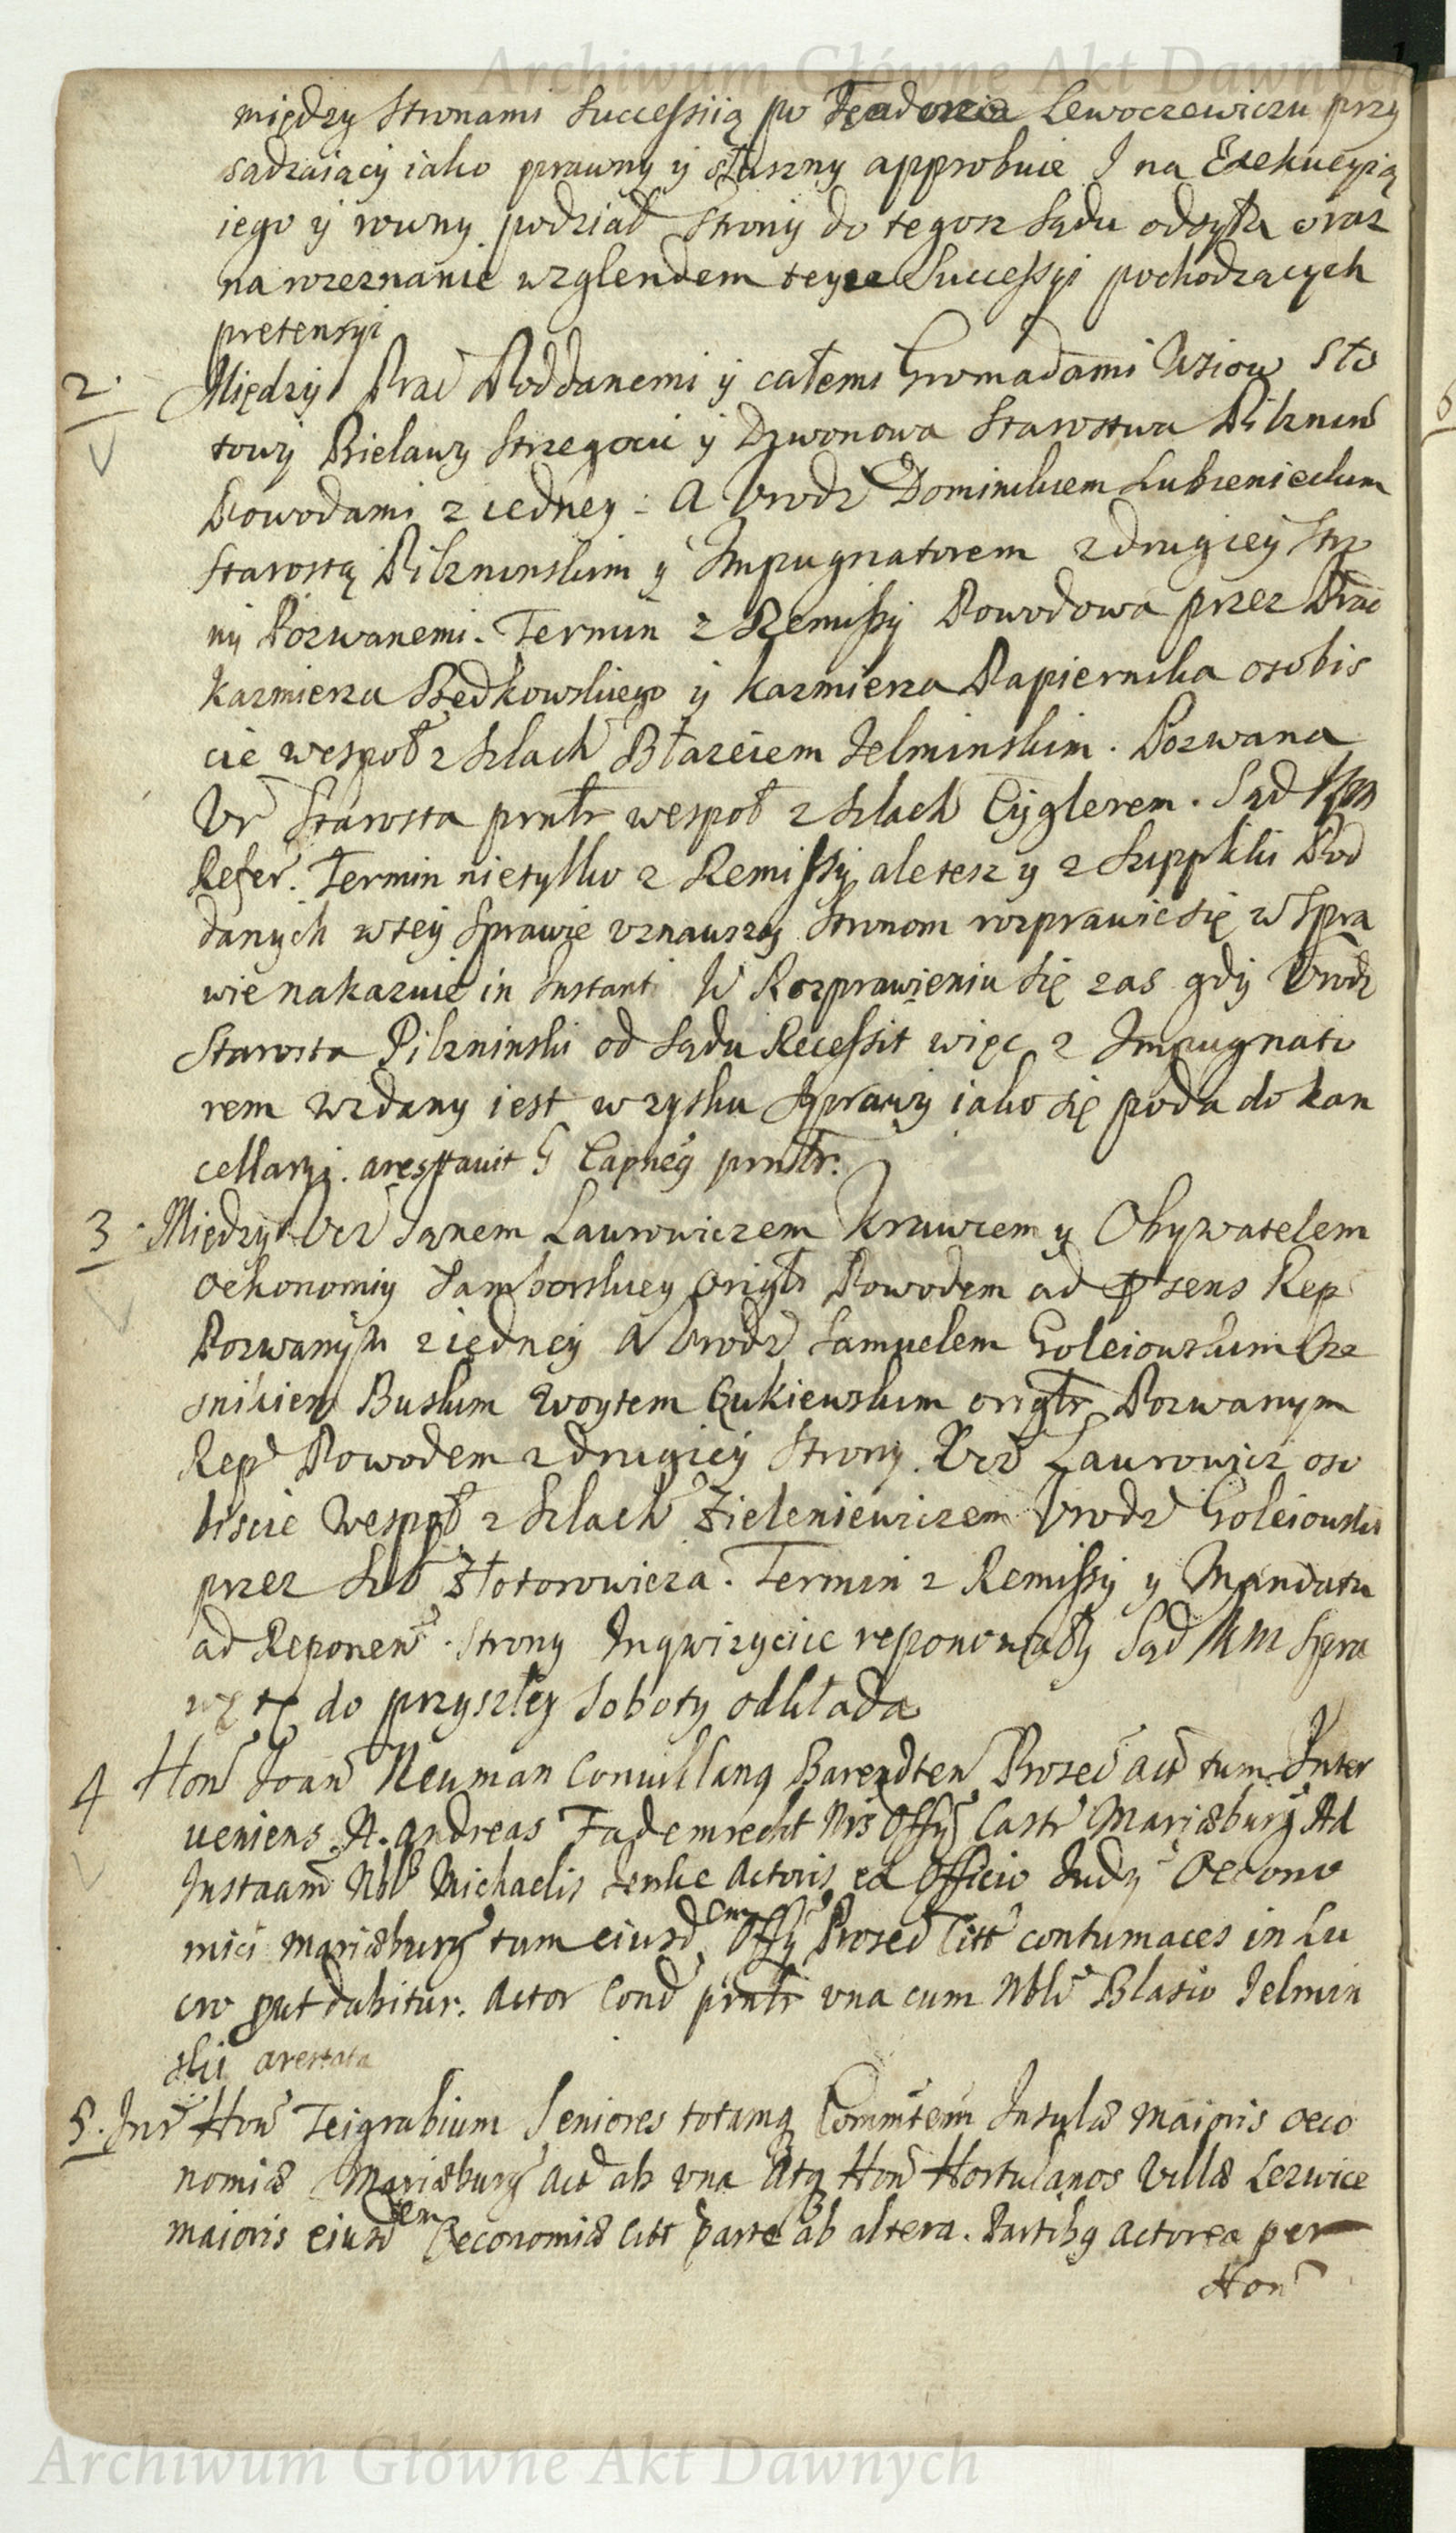 Archiwum Główne Akt Dawnych
między Stronami Successiią po Lewoczewiczu przy
sądzaiący iako prawny y słuszny approbuie I na Exekucyią
iego y rowny podział Strony do tegosz Sądu odsyła oraz
na rozeznanie względem teysze Successyi pochodzących
pretensyi
2. Między Prac Poddanemi y całemi Gromadami Wsiow Sło
towy Bielawy Strzegocic y Dzwonowa Starostwa Pilznen
Powodami z iedney: A Urodz Dominikiem Lubienieckim
Starostą Pilzninskim y Impugnatorem z drugiey Stro
ny Pozwanemi. Termin z Remissy Powodowa przez Prac
Kazmierza Będkowskiego y Kazmierza Papiernika osobis
cie wespoł z Szlach Błazeiem Jelminskim. Pozwana
Ur Starosta prntr wespoł z Szlach Cyglerem. Sąd
Refer. Termin nietylko z Remissy ale tesz y z Suppliki Pod
danych w tey Sprawie uznawszy Stronom rozprawic się w Spra
wie nakazuie in Instanti W Rozprawieniu się zas gdy Urodz
Starosta Pilzninski od Sądu Recessit więc z Impugnato
rem wzdany iest w zysku Sprawy iako się poda do kan
cellaryi. arestavit G Capneus prntr.
3. Między Ucz Janem Laurowiczem Krawcem y Obywatelem
Oekonomiy Samborskiey origtr Powodem ad psens Rep
Pozwanym z iedney A Urodz Samuelem Goleiowskim Cze
snikiem Buskim Woytem Łukiewskim origtr Pozwanym
Rep Powodem z drugiey Strony. Ucz Laurowicz oso
biscie Wespoł z Szlach Zieleniewiczem Urodz Goleiowski
przez Szl Złotorowicza. Termin z Remissy y Mandatu
ad Reponen. Strony Inqwizyciie reponowały Sąd Spra
wę tę do przyszłey Soboty odkłada
4 Hon Joan Neuman Convillanq Barendten Prosec act tum Inter
veniens N. Andreas Fademrecht Nrs Offy Castr Mariæburg Ad
Instaam Nbl Michaelis Jenke Actoris ex Officio Judy Oecono
mici Mariæburg tum eiusd em Offy Prosec Citt contumaces in Lu
cro put dabitur. Actor Cond prntr una cum Nbli Blasio Jelmin
ski arestata
5. Intr Hon Teigrabium Seniores totamq Commtem Insulæ maioris oeco
nomiæ Mariæburg Act ab una Atq Hon Hortulanos Villæ Lezwice
maioris eiusd em Oeconomiæ Citt parte ab altera. Partibq actorea per
Hon
Archiwum Główne Akt Dawnych